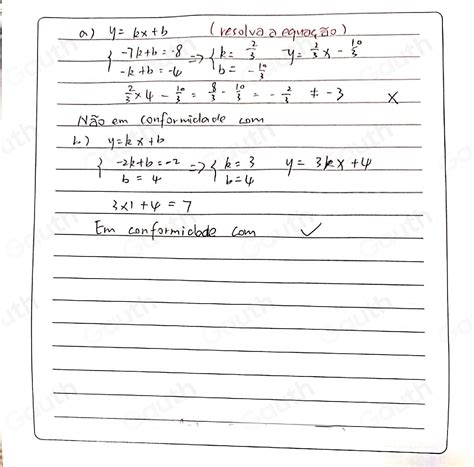 a) y = kx+b (resolva a equação)
{ -7k+b=-8 => { k= 2/3 y= 2/3 x - 10/3
-k+b=-4 b = - 10/3
2/3 × 4 - 10/3 = 8/3 - 10/3 = - 2/3 ≠ -3 X
Não em conformidade com
b.) y=kx+b
{ -2k+b=-2 => { k=3 y= 3kx+4
b = 4 b=4
3×1+4=7
Em conformidade com ✓